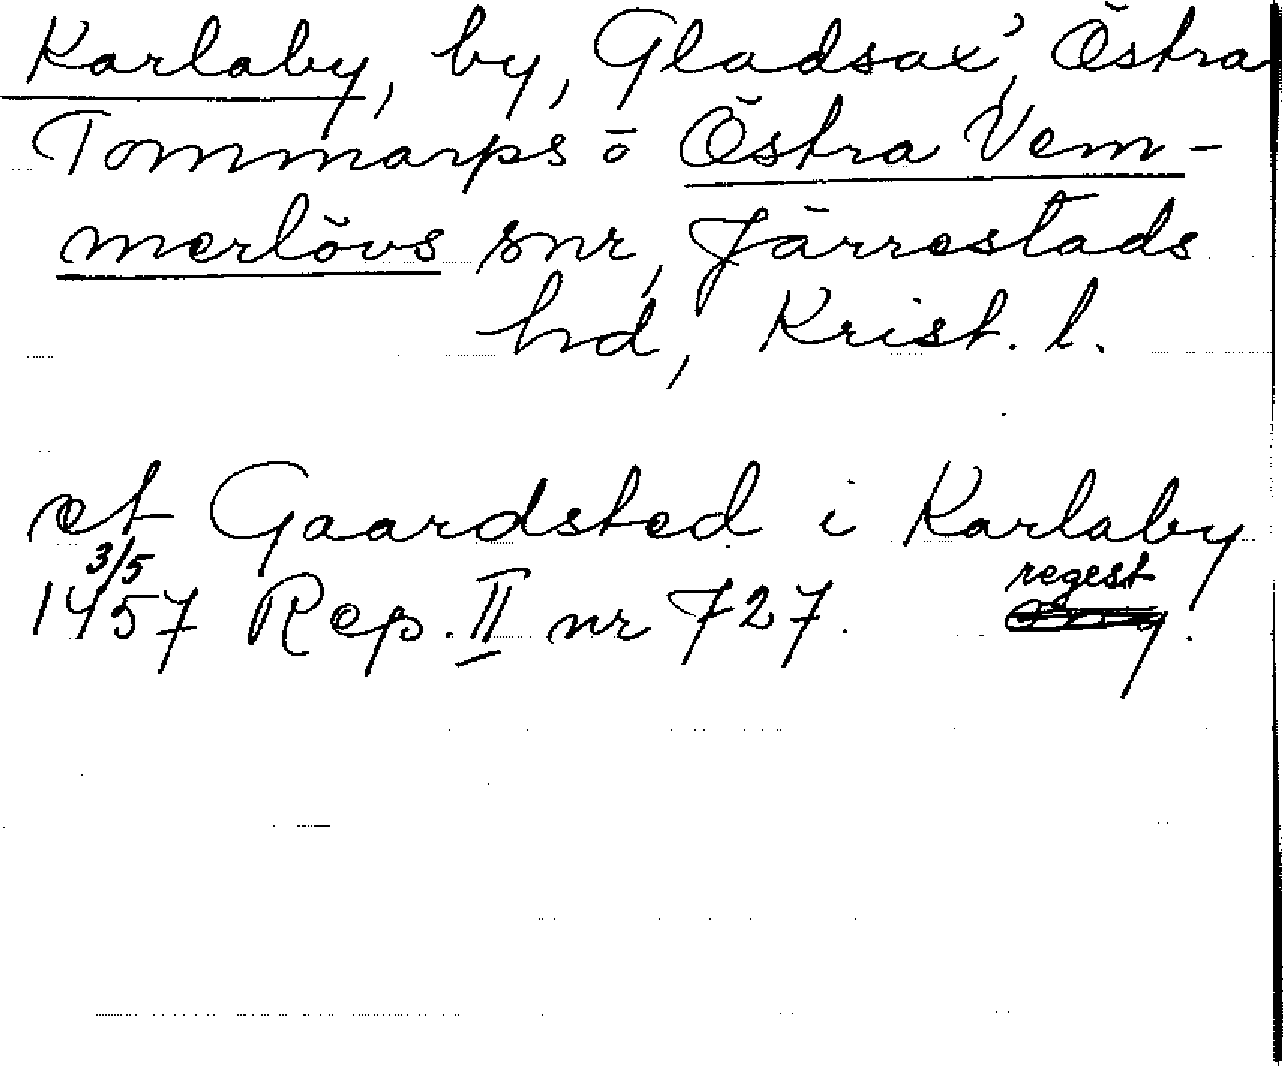 Karlaby, by, Gladsax', Östra
Tommarps o Östra Vem-
merlövs snr, Järrestads
hd, Krist. l.
et Gaardsted i Karlaby
3/5 regest
1457 Rep. II nr 727.